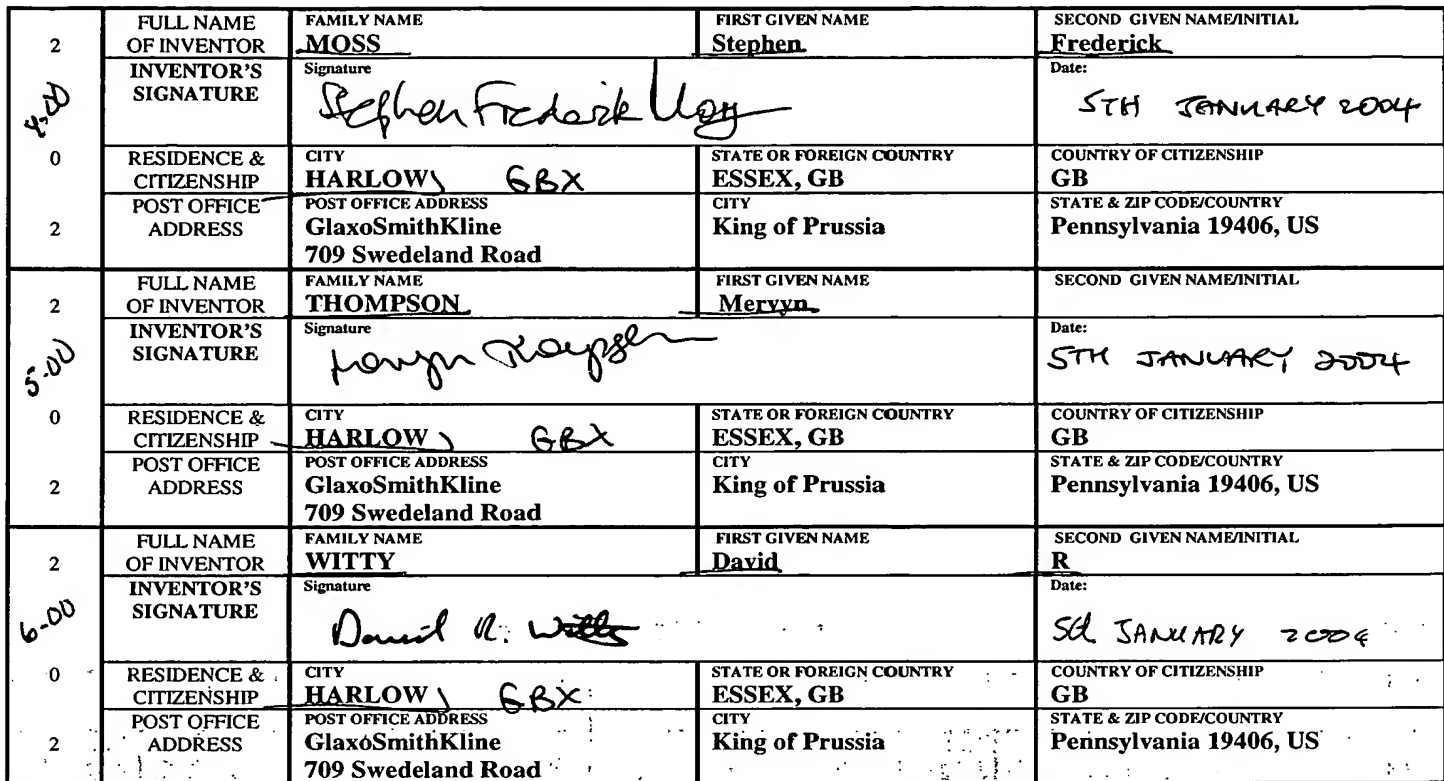 2 FULL NAME OF INVENTOR FAMILY NAME MOSS FIRST GIVEN NAME Stephen SECOND GIVEN NAME/INITIAL Frederick
4-00 INVENTOR'S SIGNATURE Signature Stephen Frederick Moss Date: 5TH JANUARY 2004
0 RESIDENCE & CITIZENSHIP CITY HARLOW, GBX STATE OR FOREIGN COUNTRY ESSEX, GB COUNTRY OF CITIZENSHIP GB
2 POST OFFICE ADDRESS POST OFFICE ADDRESS GlaxoSmithKline 709 Swedeland Road CITY King of Prussia STATE & ZIP CODE/COUNTRY Pennsylvania 19406, US
2 FULL NAME OF INVENTOR FAMILY NAME THOMPSON FIRST GIVEN NAME Mervyn SECOND GIVEN NAME/INITIAL
5-00 INVENTOR'S SIGNATURE Signature Mervyn Thompson Date: 5TH JANUARY 2004
0 RESIDENCE & CITIZENSHIP CITY HARLOW, GBX STATE OR FOREIGN COUNTRY ESSEX, GB COUNTRY OF CITIZENSHIP GB
2 POST OFFICE ADDRESS POST OFFICE ADDRESS GlaxoSmithKline 709 Swedeland Road CITY King of Prussia STATE & ZIP CODE/COUNTRY Pennsylvania 19406, US
2 FULL NAME OF INVENTOR FAMILY NAME WITTY FIRST GIVEN NAME David SECOND GIVEN NAME/INITIAL R
6-00 INVENTOR'S SIGNATURE Signature David R. Witty Date: 5th JANUARY 2004
0 RESIDENCE & CITIZENSHIP CITY HARLOW, GBX STATE OR FOREIGN COUNTRY ESSEX, GB COUNTRY OF CITIZENSHIP GB
2 POST OFFICE ADDRESS POST OFFICE ADDRESS GlaxoSmithKline 709 Swedeland Road CITY King of Prussia STATE & ZIP CODE/COUNTRY Pennsylvania 19406, US